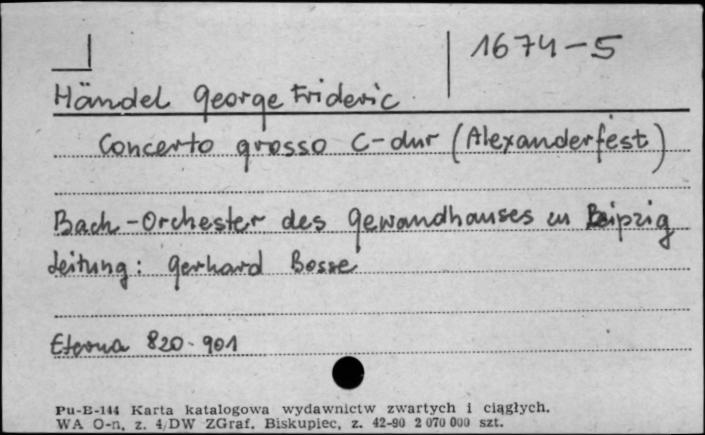 1674-5
Händel George Frideric
Concerto grosso C-dur (Alexanderfest)
Bach-Orchester des Gewandhauses zu Leipzig
Leitung: Gerhard Bosse
Eterna 820-901
Pu-B-144 Karta katalogowa wydawnictw zwartych i ciągłych.
WA O-n, z. 4/DW ZGraf. Biskupiec, z. 42-90 2 070 000 szt.